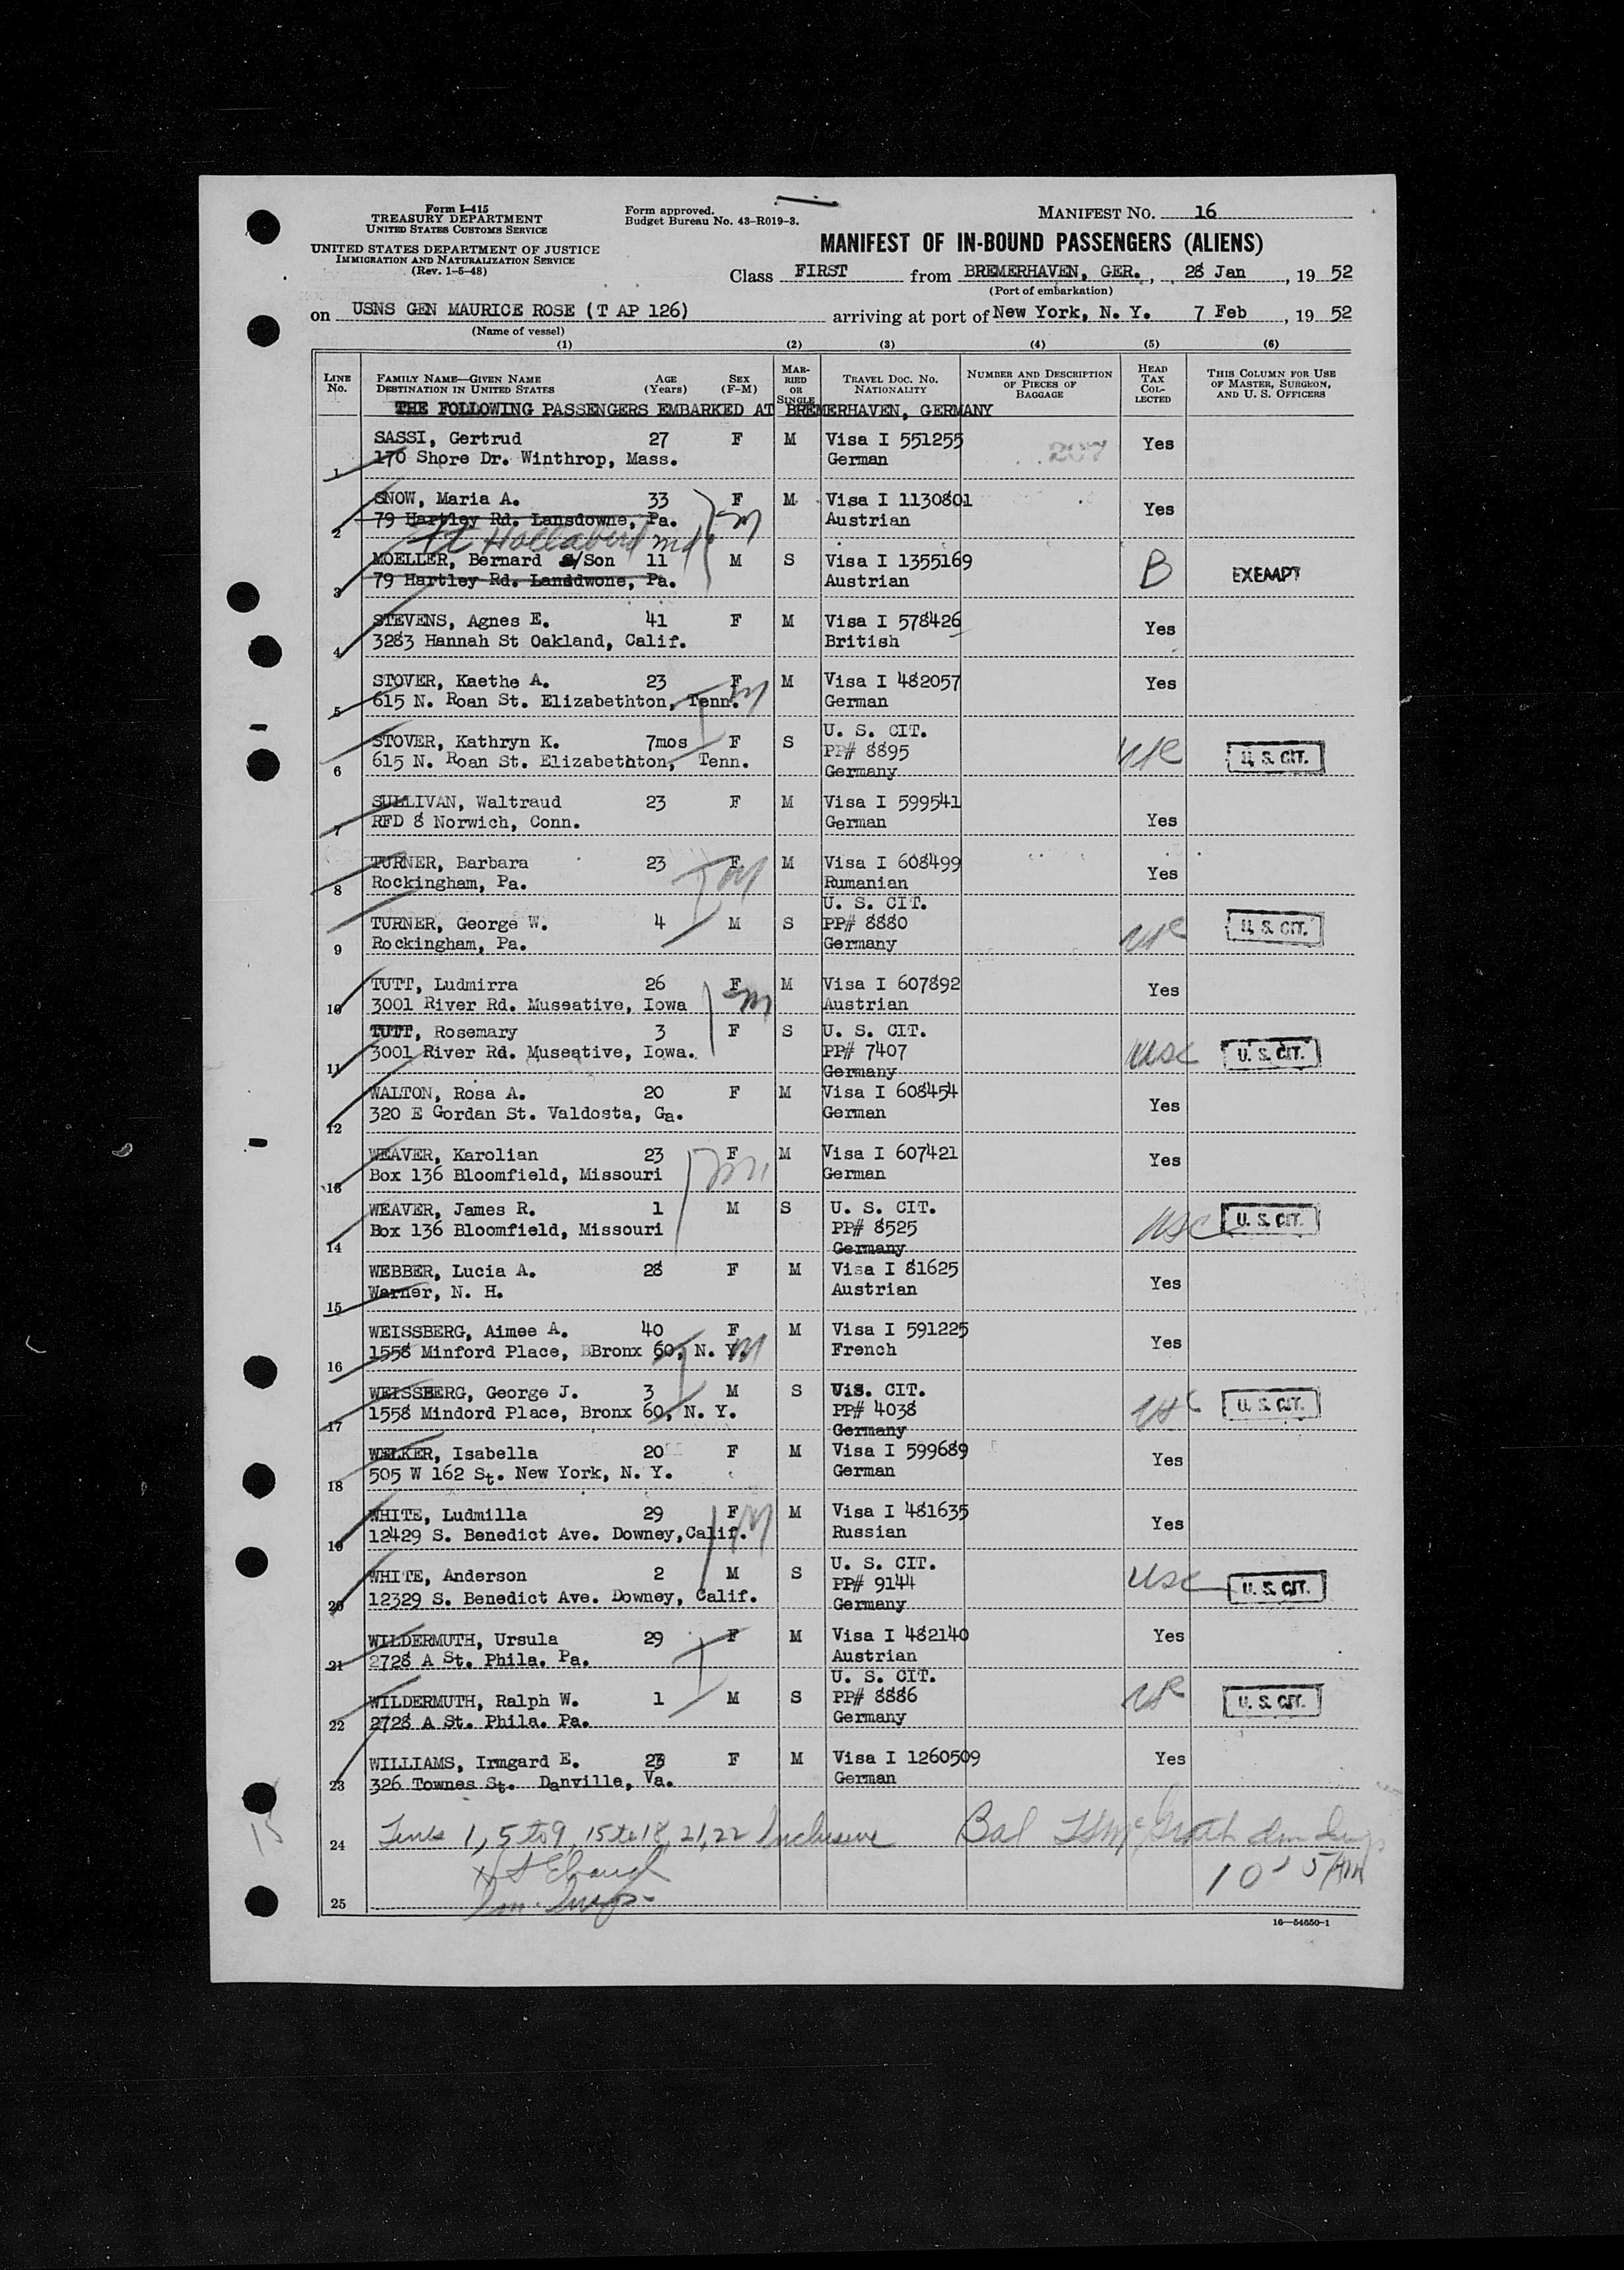 Form I-415
TREASURY DEPARTMENT
UNITED STATES CUSTOMS SERVICE
UNITED STATES DEPARTMENT OF JUSTICE
IMMIGRATION AND NATURALIZATION SERVICE
(Rev. 1-5-48)
Form approved.
Budget Bureau No. 43-R019-3.
MANIFEST NO. 16
MANIFEST OF IN-BOUND PASSENGERS (ALIENS)
Class FIRST from BREMERHAVEN, GER., 28 Jan, 19 52
(Port of embarkation)
on USNS GEN MAURICE ROSE (T AP 126) arriving at port of New York, N. Y. 7 Feb, 19 52
(Name of vessel)
(1) (2) (3) (4) (5) (6)
LINE NO. FAMILY NAME—GIVEN NAME DESTINATION IN UNITED STATES AGE (Years) SEX (F-M) MARRIED OR SINGLE TRAVEL DOC. NO. NATIONALITY NUMBER AND DESCRIPTION OF PIECES OF BAGGAGE HEAD TAX COLLECTED THIS COLUMN FOR USE OF MASTER, SURGEON, AND U. S. OFFICERS
THE FOLLOWING PASSENGERS EMBARKED AT BREMERHAVEN, GERMANY
SASSI, Gertrud 27 F M Visa I 551255 207 Yes
1 170 Shore Dr. Winthrop, Mass. German
SNOW, Maria A. 33 F M Visa I 1130801 Yes
2 79 Hartley Rd. Lansdowne, Pa. Austrian
Ft Hollabird md
MOELLER, Bernard s/Son 11 M S Visa I 1355169 B EXEMPT
3 79 Hartley Rd. Landdwone, Pa. Austrian
STEVENS, Agnes E. 41 F M Visa I 578426 Yes
4 3283 Hannah St Oakland, Calif. British
STOVER, Kaethe A. 23 F M Visa I 482057 Yes
5 615 N. Roan St. Elizabethton, Tenn. German
U. S. CIT.
STOVER, Kathryn K. 7mos F S PP# 8895 U. S. CIT.
6 615 N. Roan St. Elizabethton, Tenn. Germany
SULLIVAN, Waltraud 23 F M Visa I 599541
7 RFD 8 Norwich, Conn. German Yes
TURNER, Barbara 23 F M Visa I 608499 Yes
8 Rockingham, Pa. Rumanian
U. S. CIT.
TURNER, George W. 4 M S PP# 8880 U. S. CIT.
9 Rockingham, Pa. Germany
TUTT, Ludmirra 26 F M Visa I 607892 Yes
10 3001 River Rd. Museative, Iowa Austrian
TUTT, Rosemary 3 F S U. S. CIT.
11 3001 River Rd. Museative, Iowa. PP# 7407 USC U. S. CIT.
Germany
WALTON, Rosa A. 20 F M Visa I 608454 Yes
12 320 E Gordan St. Valdosta, Ga. German
WEAVER, Karolian 23 F M Visa I 607421 Yes
13 Box 136 Bloomfield, Missouri German
WEAVER, James R. 1 M S U. S. CIT.
14 Box 136 Bloomfield, Missouri PP# 8525 USC U. S. CIT.
Germany
WEBBER, Lucia A. 28 F M Visa I 81625 Yes
15 Warner, N. H. Austrian
WEISSBERG, Aimee A. 40 F M Visa I 591225 Yes
16 1558 Minford Place, BBronx 60, N. Y. French
WEISSBERG, George J. 3 M S U.S. CIT.
17 1558 Mindord Place, Bronx 60, N. Y. PP# 4038 U. S. CIT.
Germany
WELKER, Isabella 20 F M Visa I 599689 Yes
18 505 W 162 St. New York, N. Y. German
WHITE, Ludmilla 29 F M Visa I 481635 Yes
19 12429 S. Benedict Ave. Downey, Calif. Russian
U. S. CIT.
WHITE, Anderson 2 M S PP# 9144 USC U. S. CIT.
20 12329 S. Benedict Ave. Downey, Calif. Germany
WILDERMUTH, Ursula 29 F M Visa I 482140 Yes
21 2728 A St. Phila. Pa. Austrian
U. S. CIT.
WILDERMUTH, Ralph W. 1 M S PP# 8886 U. S. CIT.
22 2728 A St. Phila. Pa. Germany
WILLIAMS, Irmgard E. 23 F M Visa I 1260509 Yes
23 326 Townes St. Danville, Va. German
24 Lines 1, 5 to 9, 15 to 18, 21, 22 Inclusive Bal McGrath
10 15 AM
25
16—54650-1